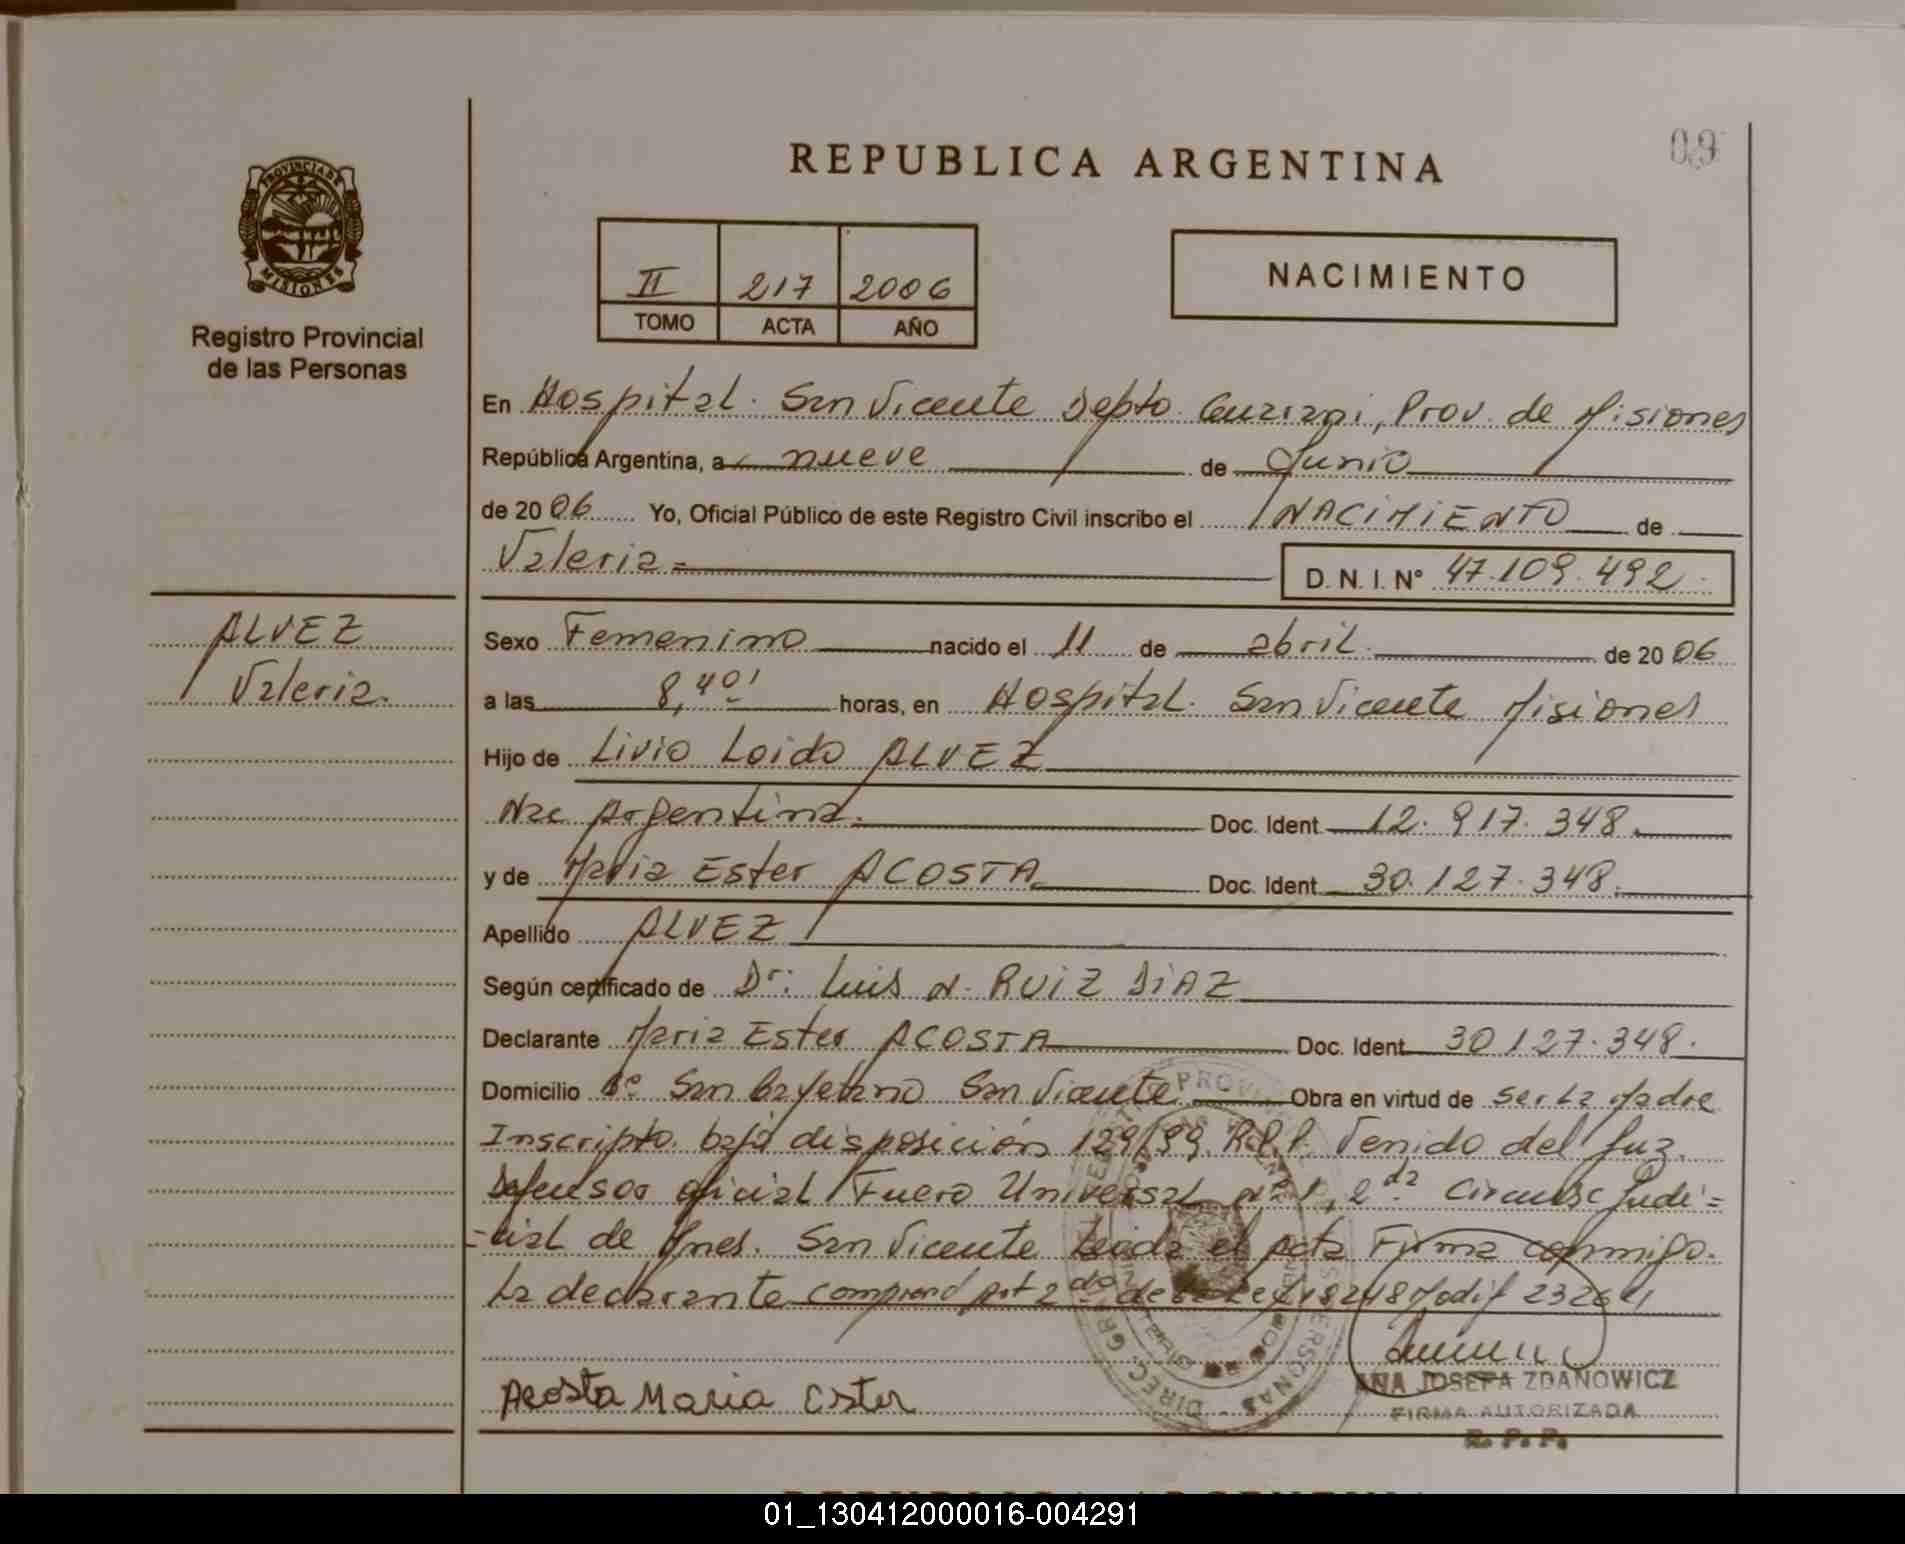 REPUBLICA ARGENTINA
09
PROVINCIA DE
MISIONES
Registro Provincial
de las Personas
II 217 2006
TOMO ACTA AÑO
NACIMIENTO
En Hospital. San Vicente Depto. Guarani, Prov. de Misiones
República Argentina, a nueve de Junio
de 2006 Yo, Oficial Público de este Registro Civil inscribo el NACIMIENTO de
Valeria=
D. N. I. Nº 47.109.492.
ALVEZ
Valeria.
Sexo Femenino nacido el 11 de abril. de 2006
a las 8,40' horas, en Hospital. San Vicente Misiones
Hijo de Livio Loido ALVEZ
Nac Argentina. Doc. Ident. 12.917.348.
y de Maria Ester ACOSTA Doc. Ident. 30.127.348.
Apellido ALVEZ
Según certificado de Dr: Luis N. RUIZ DIAZ
Declarante Maria Ester ACOSTA Doc. Ident. 30 127.348.
Domicilio Bº San Cayetano San Vicente Obra en virtud de ser La Madre
Inscripto bajo disposición 129/99 R.P.P. Venido del Juz.
Defensor oficial Fuero Universal nº 1, 2da Circunsc Judi=
=cial de Mnes. San Vicente Leida el Acta Firma conmigo.
La declarante comprend Art 2do de La Ley 18248 Modif 23264
Acosta Maria Ester
ANA JOSEFA ZDANOWICZ
FIRMA AUTORIZADA
R. P. P.
REPUBLICA ARGENTINA
01_130412000016-004291